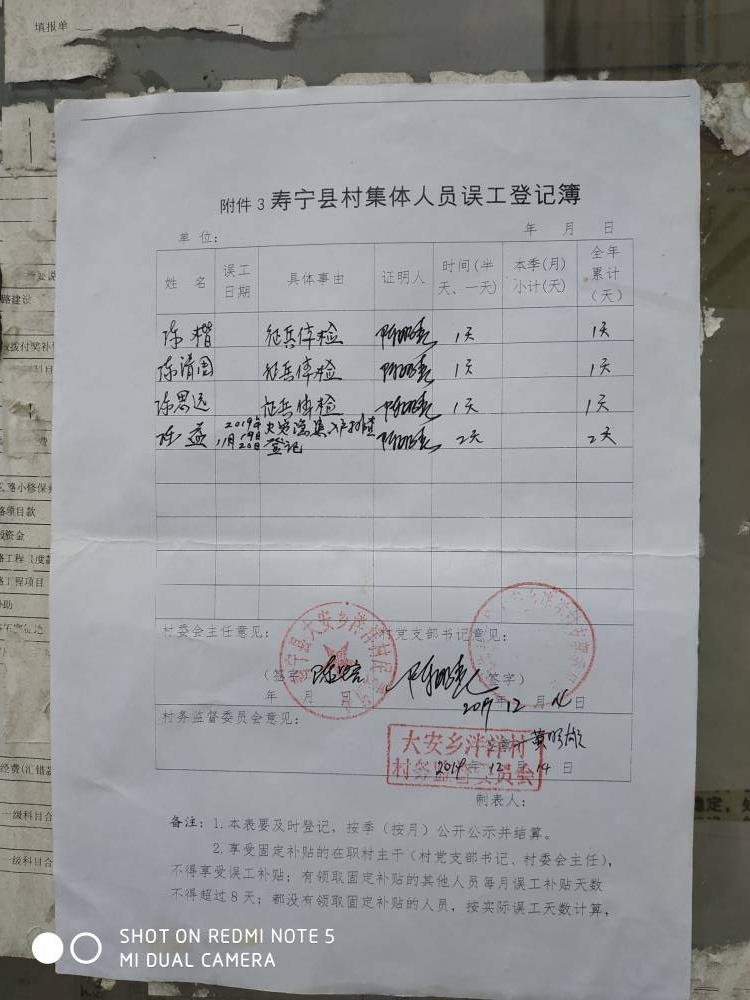 填报单
附件3 寿宁县村集体人员误工登记簿
单 位： 年 月 日
姓 名 误工日期 具体事由 证明人 时间(半天、一天) 本季(月)小计(天) 全年累计（天）
陈楷 征兵体检 1天 1天
陈清国 征兵体检 1天 1天
陈思远 征兵体检 1天 1天
陈益 2019年11月19日20日 入户排查登记 2天 2天
村委会主任意见： 村党支部书记意见：
（签字 签字）
年 月 日 2019年12月14日
村务监督委员会意见：
大安乡泮洋村
村务监督委员会
2019年12月14日
制表人：
备注：1.本表要及时登记，按季（按月）公开公示并结算。
2.享受固定补贴的在职村主干（村党支部书记、村委会主任），
不得享受误工补贴；有领取固定补贴的其他人员每月误工补贴天数
不得超过8天；都没有领取固定补贴的人员，按实际误工天数计算，
路建设
拨付奖补
路小修保
路项目款
资金
路工程项目
经费(汇错
一级科目合
一级科目合
SHOT ON REDMI NOTE 5
MI DUAL CAMERA